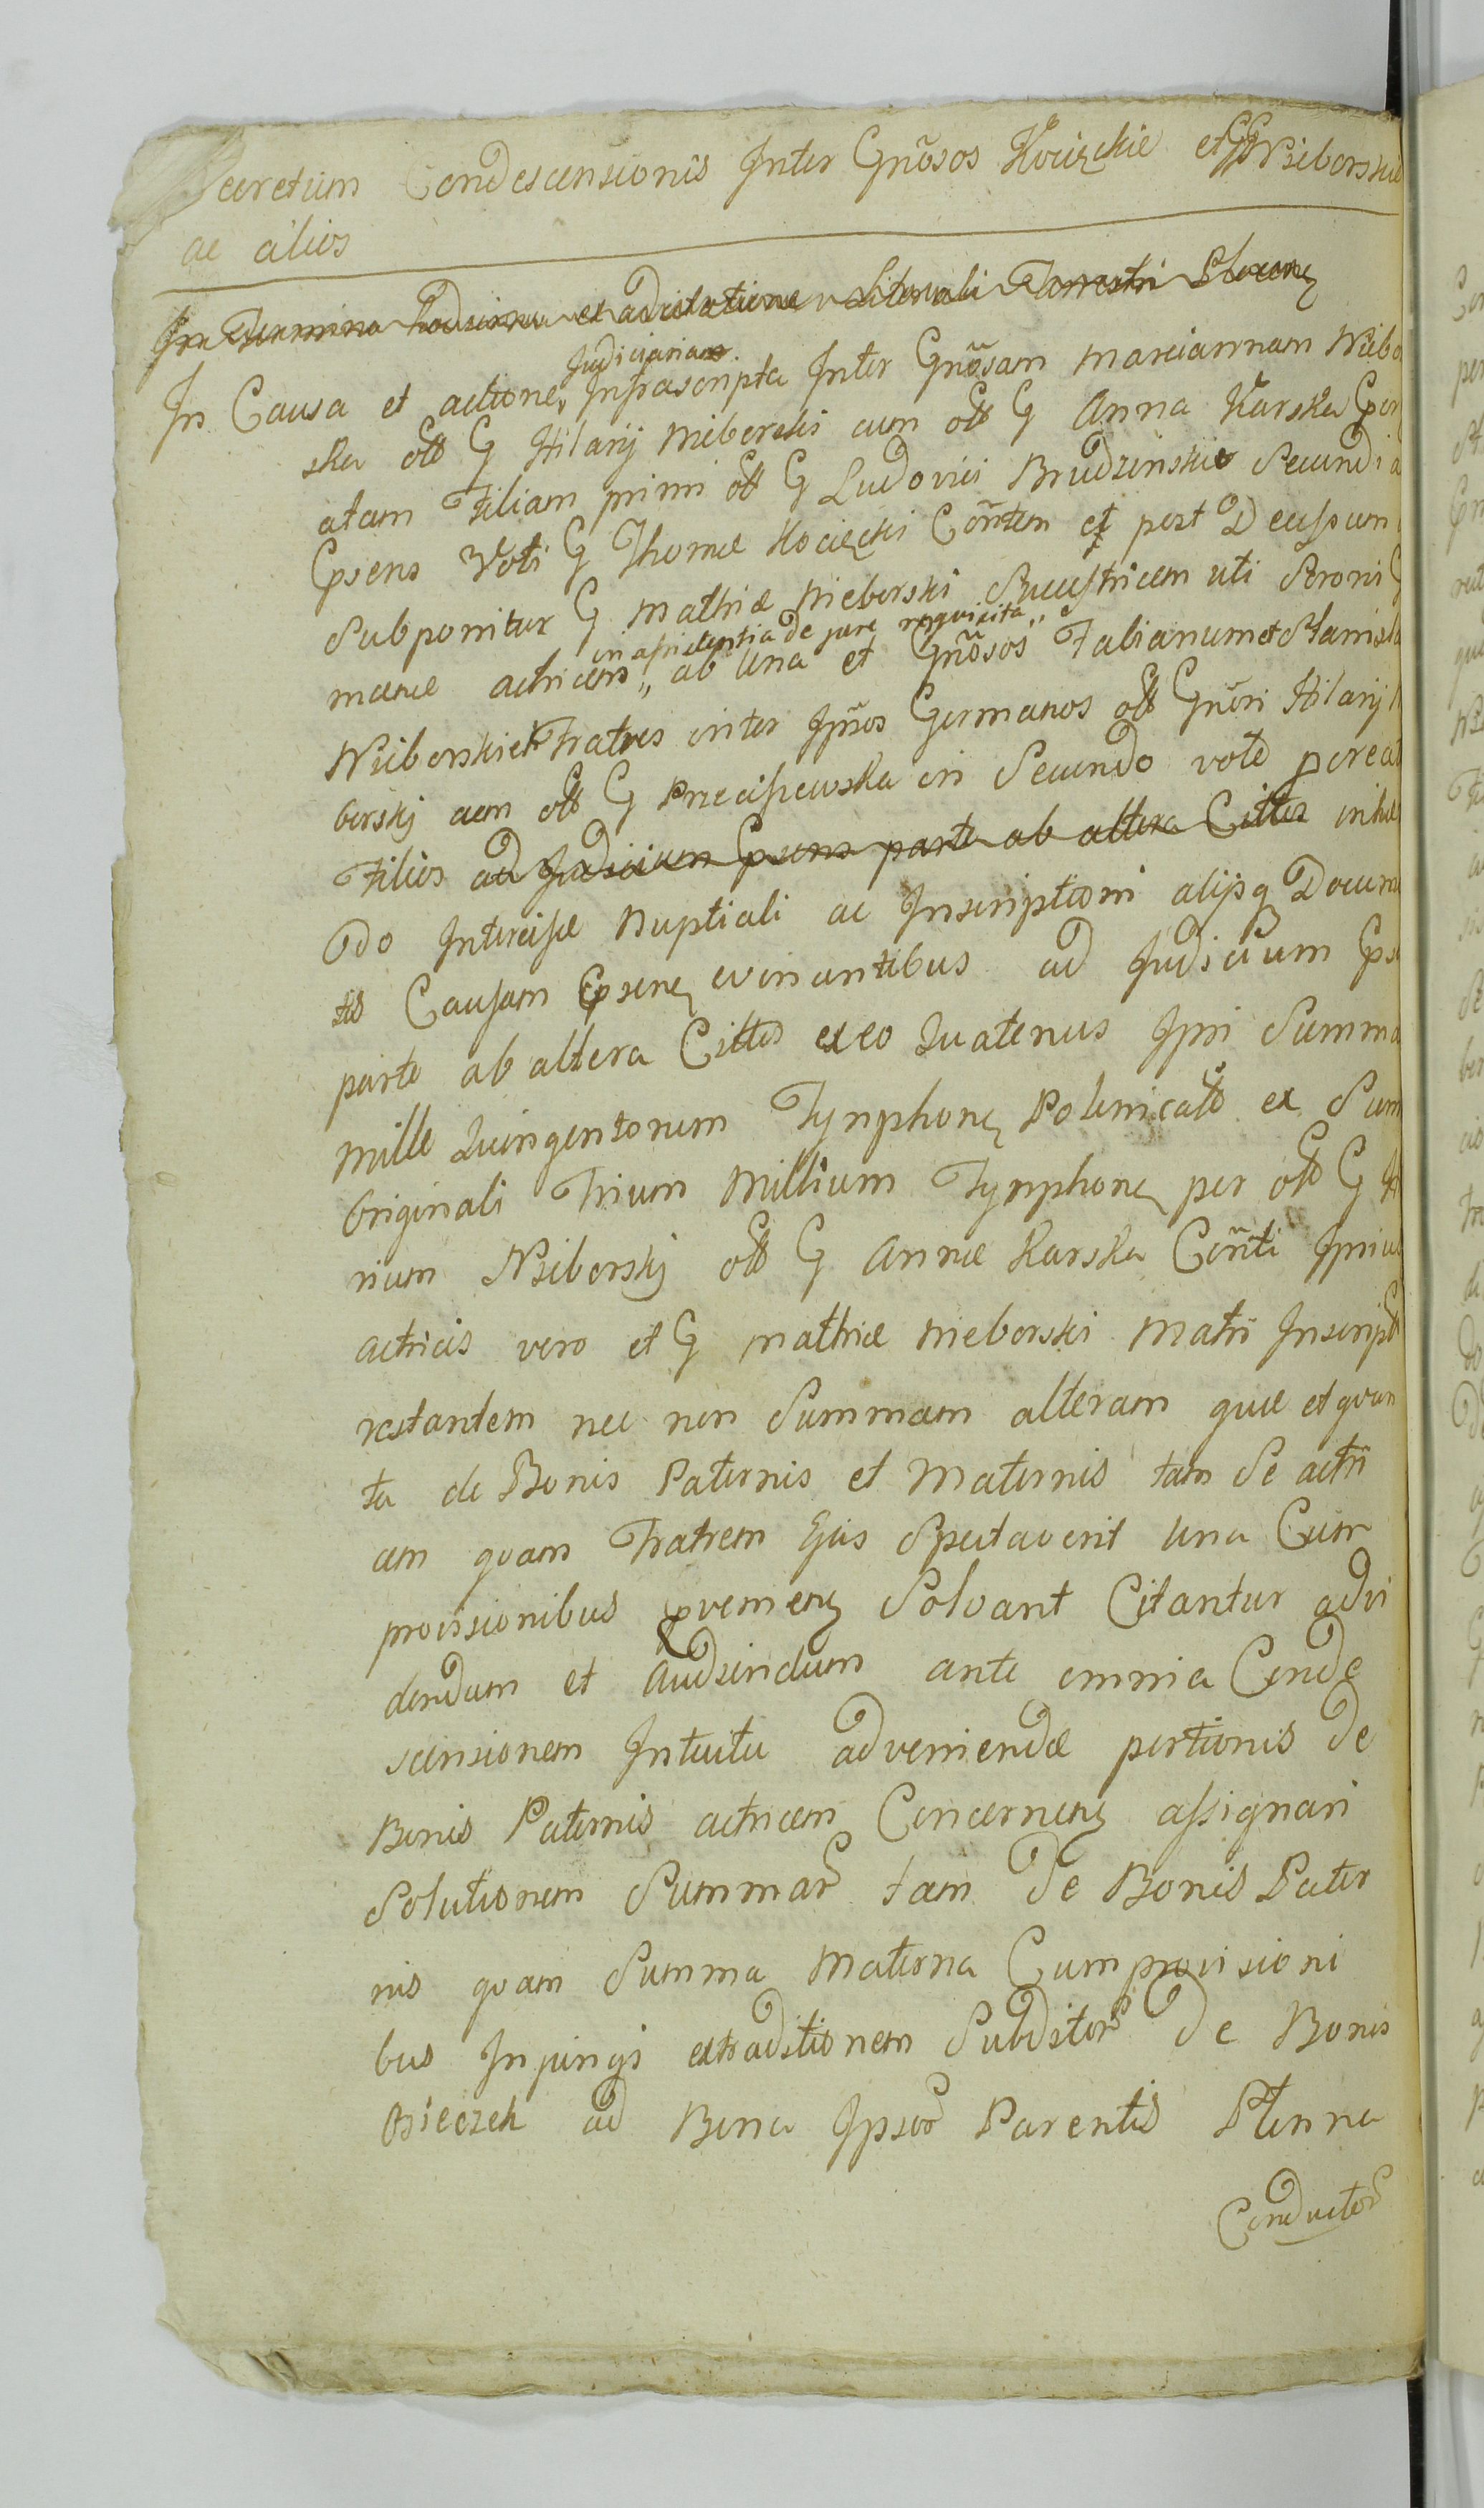 Decretum Condescensionis Inter Gnõsos Kocięckie et GG Nieborskie
ac alios
In Termino hodierno ex adcitatione Literali Terrestri Plocen
Judiciaria
In Causa et actione, Infrascripta Inter Gnõsam Mariannam Niebo
ska ol G Hilarij Nieborski cum ol G Anna Karska procr
atam Filiam primi ol G Ludovici Brudzinskie Secundi a
Epsens Voti G Thomæ Kocięcki Cõntem et post Decessum
Subponitur G Mathiæ Nieborski Sucestricem uti Seroni
in assistentia de jure requisita,,
manæ actricem,, ab una et Gnõsos Fabianum et Stanisla
Nieborskie Fratres inter Ipsos Germanos ol Gnõri Hilarij
borskj cum ol G Przeciszewska in Secundo voto porcat
Filios ad Judicium Epsens parte ab altera Cittos inhæ
Do Intercisæ Nuptiali ac Inscriptioni alijsq Docum
tis Causam Epsenq evinantibus ad Judicium Eps
parte ab altera Cittos ex eo Quatenus Ipsi Summa
Mille Quingentorum Tynphonq Polinicalt ex Sum
Originali Trium Millium Tynphonq per ol G H
rium Nieborskj ol G Annæ Karska Cõnti Ipsius
actricis vero et G Mathiæ Nieborski Matri Inscript
restantem nec non Summam alteram quæ et quan
ta de Bonis Paternis et Maternis tam Se actri
cem quam Fratrem Ejus Spectaverit una Cum
provisionibus pvenienq Solvant Citantur advi
dendum et Audiendum ante omnia Conde
scensionem Intuitu adveniendæ portionis de
Bonis Paternis actricem Concernenq assignari
Solutionem Summar tam De Bonis Pater
nis quam Summa Materna Cum provisioni
bus Injungi extraditionem Subditor De Bonis
Osieczek ad Bona Ipsor Parentis Stenna
Conductor